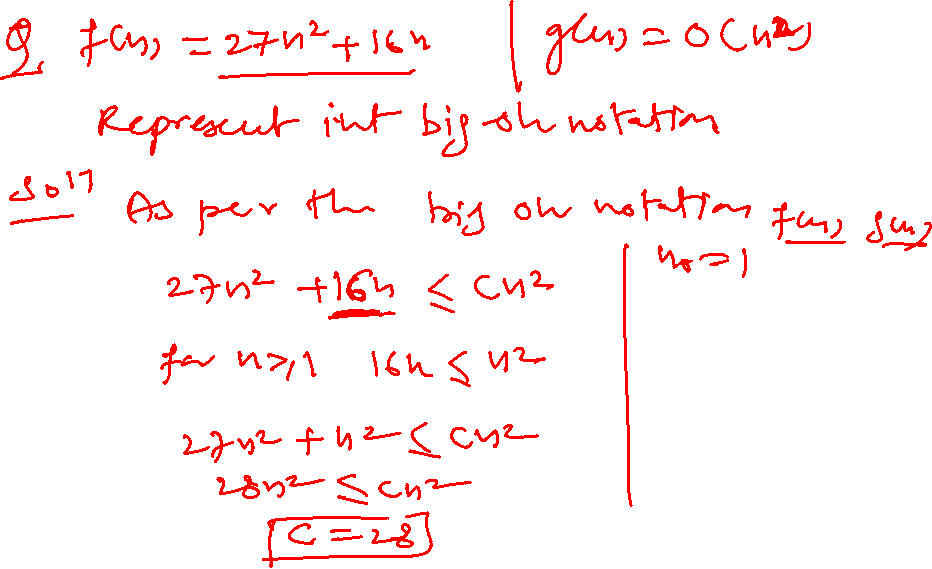 Q, f(n) = 27n² + 16n | g(n) = O(n²)
Represent int big-oh notation
Solⁿ As per the big oh notation f(n) g(n)
27n² + 16n ≤ Cn² | n₀ = 1
for n ≥ 1 16n ≤ n²
27n² + n² ≤ Cn²
28n² ≤ Cn²
C = 28